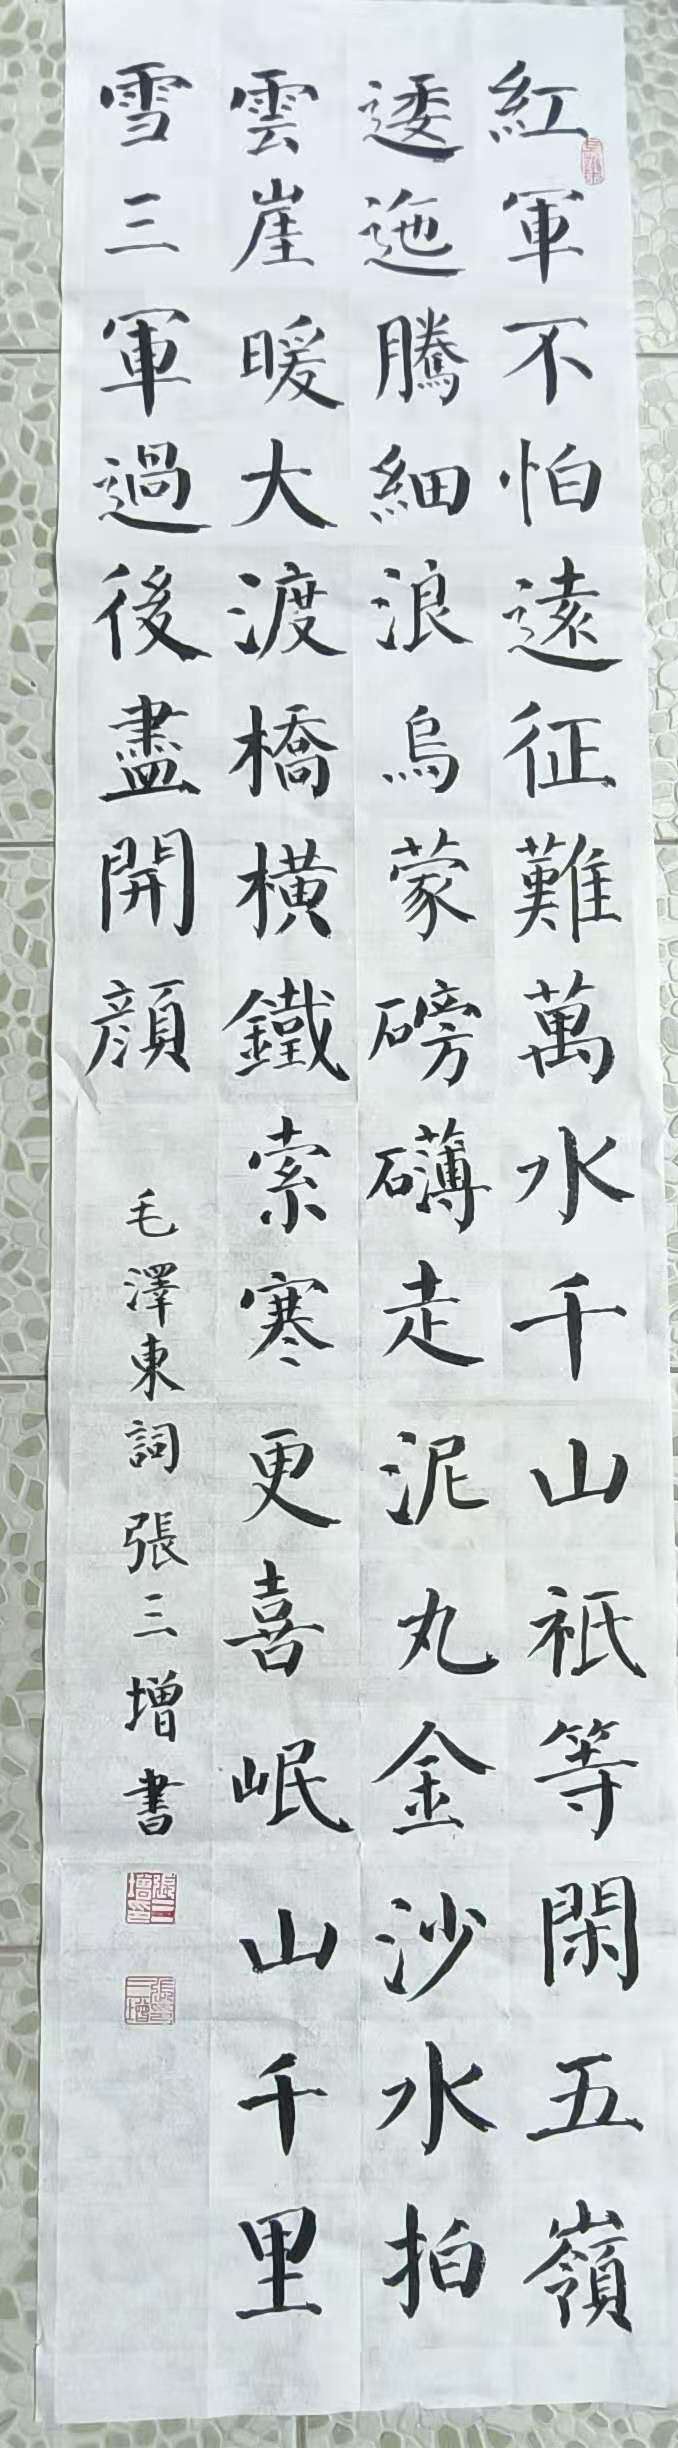 紅軍不怕遠征難萬水千山祇等閑五嶺
逶迤騰細浪烏蒙磅礴走泥丸金沙水拍
雲崖暖大渡橋橫鐵索寒更喜岷山千里
雪三軍過後盡開顔
毛澤東詞張三增書